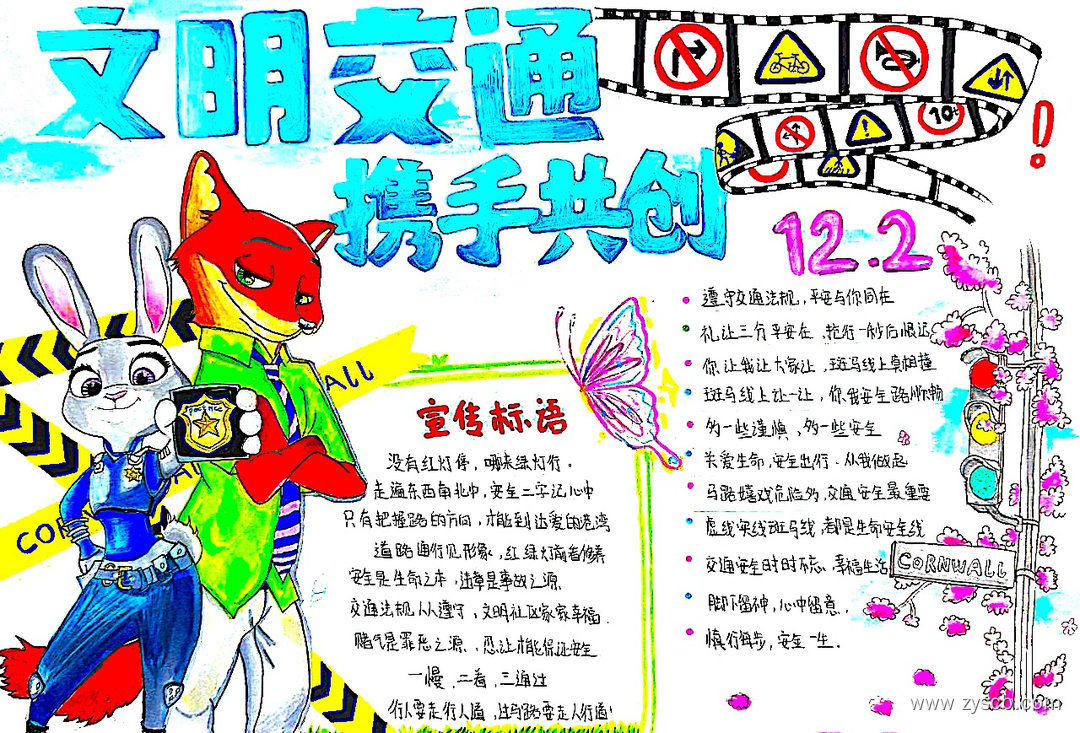 文明交通
携手共创
10t
12.2
遵守交通法规,平安与你同在
礼让三分平安在,抢行一秒后悔迟
你让我让大家让,斑马线上莫相撞
斑马线上让一让,你我安全路顺畅
多一些谨慎,多一些安全
关爱生命,安全出行.从我做起
马路嬉戏危险多,交通安全最重要
虚线实线斑马线,都是生命安全线
交通安全时时不忘,幸福生活
脚下留神,心中留意.
慎行每步,安全一生.
CORNWALL
ALL
POLICE
宣传标语
没有红灯停,哪来绿灯行.
走遍东西南北中,安全二字记心中
只有把握路的方向,才能到达爱的港湾
道路通行见形象,红绿灯前看修养
安全是生命之本,违章是事故之源.
交通法规人人遵守,文明社区家家幸福.
赌气是罪恶之源、忍让才能保证安全
一慢、二看、三通过
行人要走行人道,过马路要走人行道!
CO
www.zysco.com